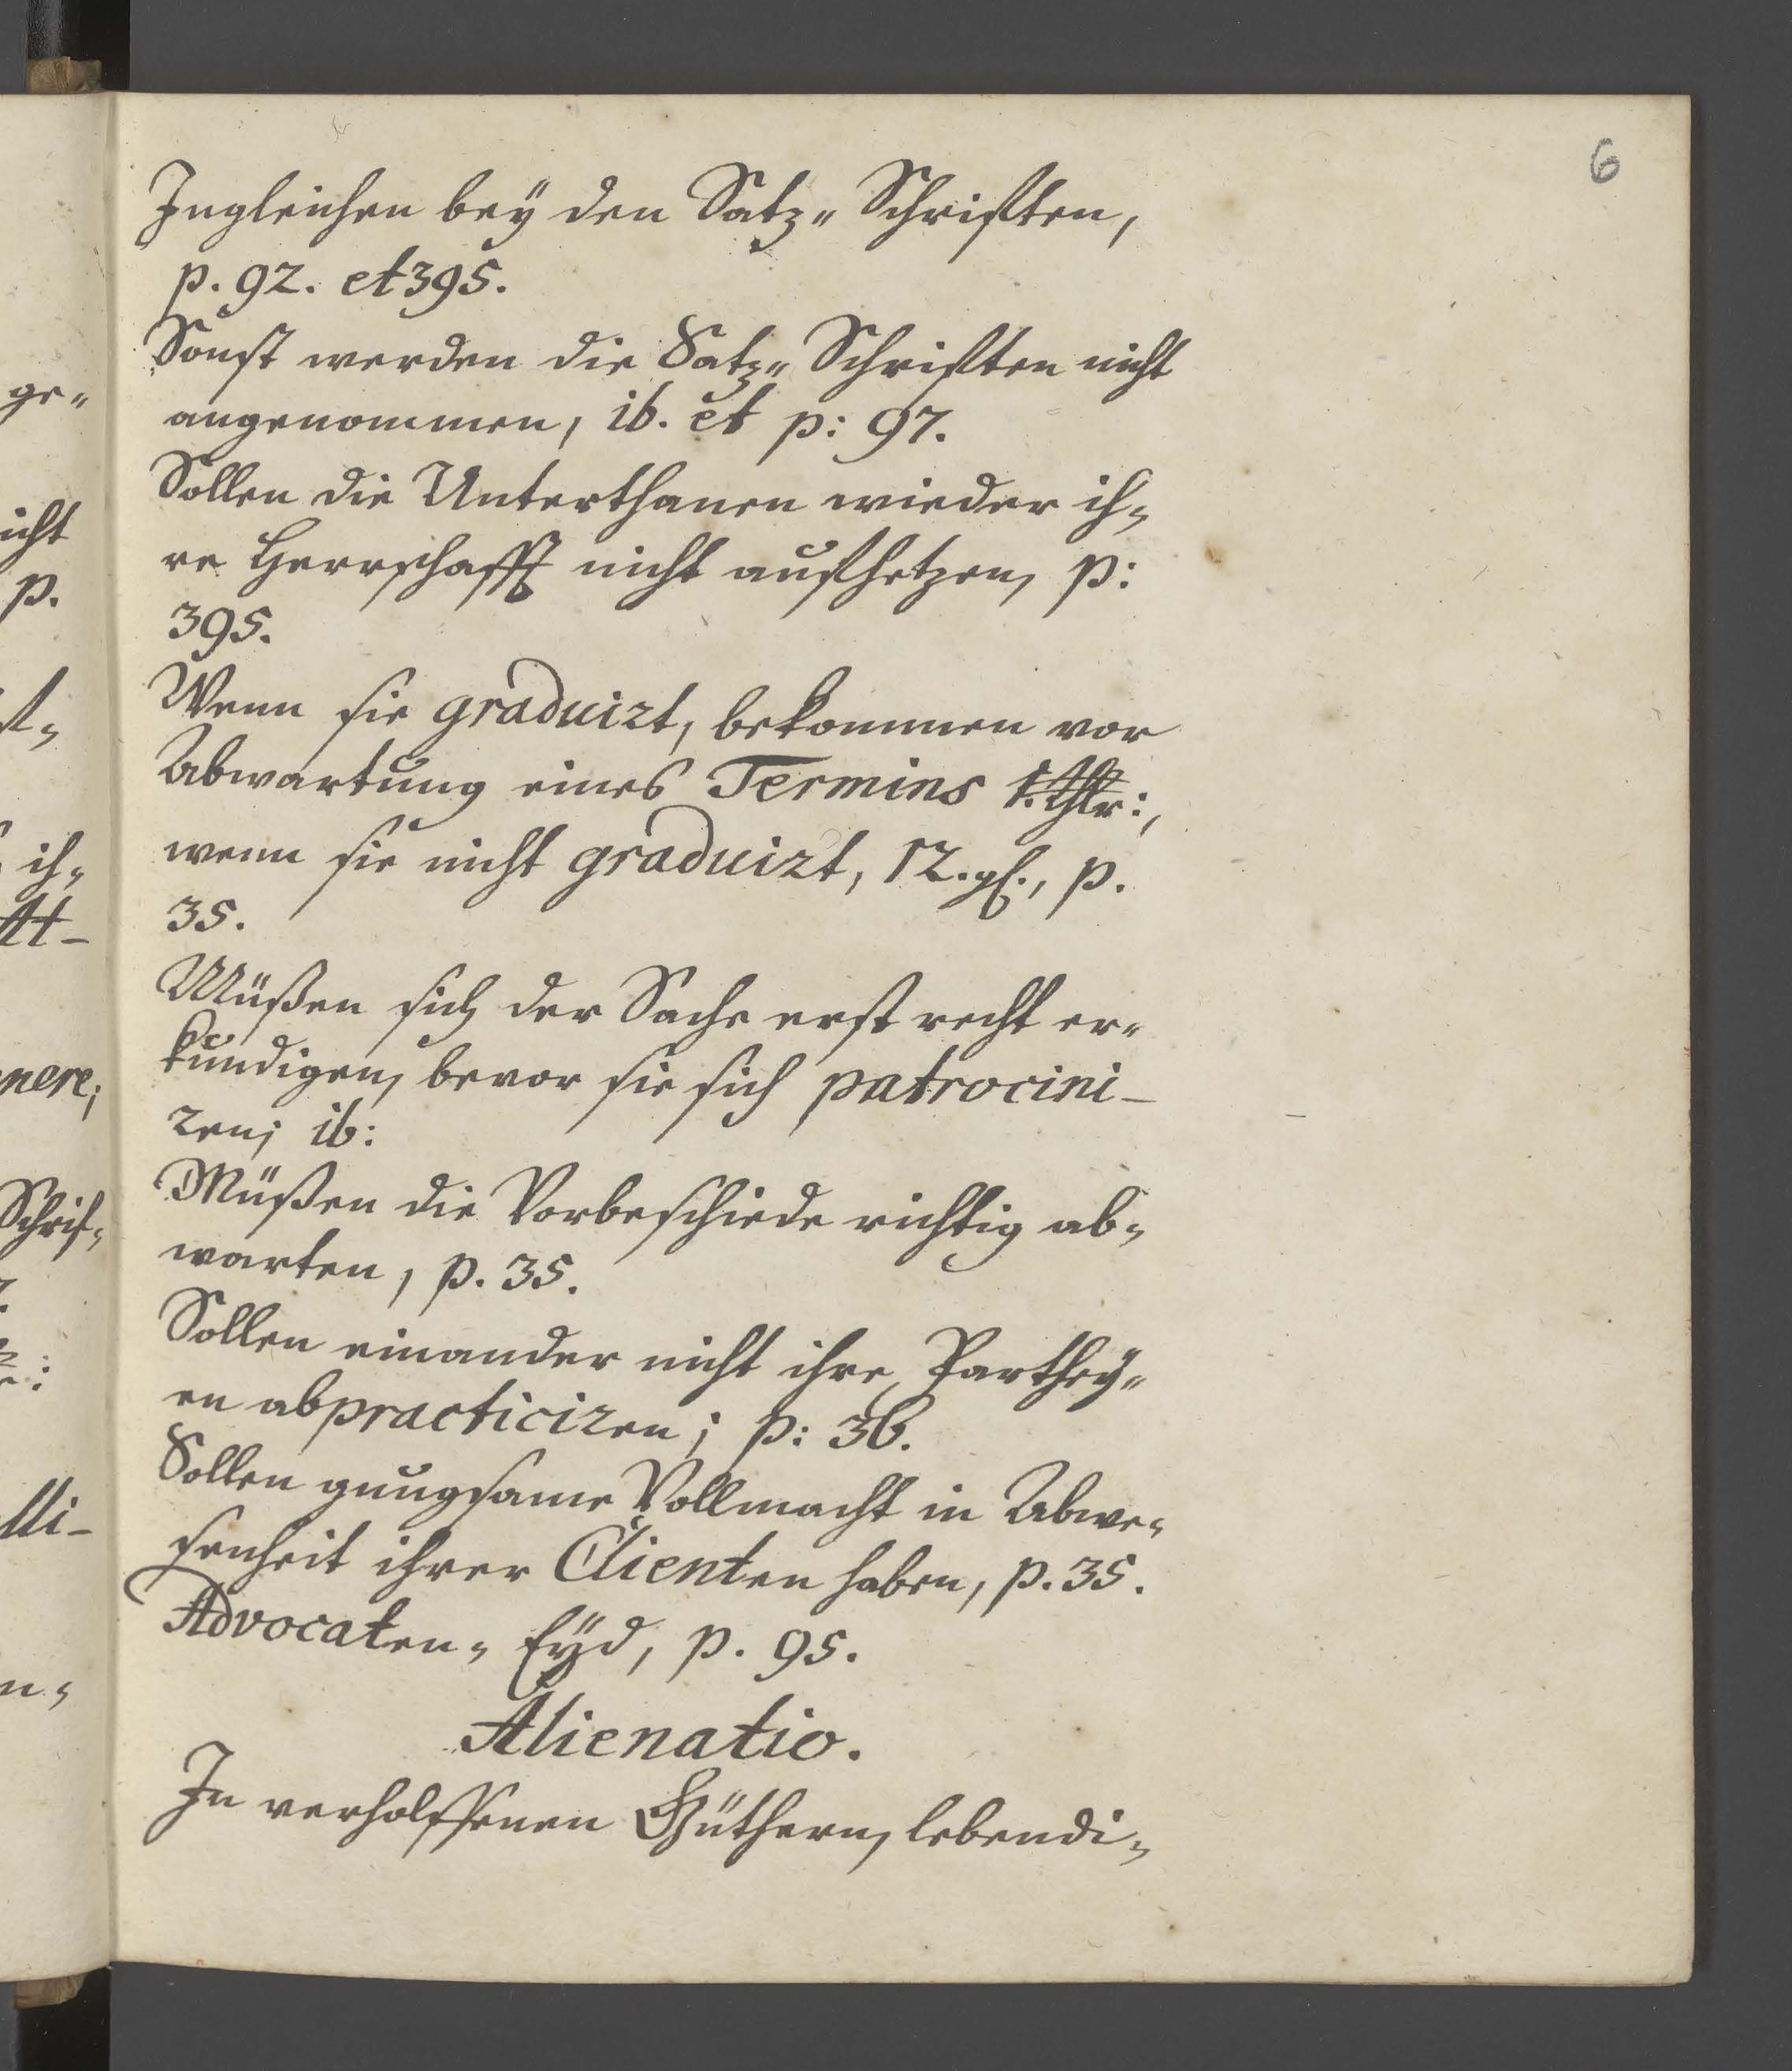 6
Ingleichen bey den Satz-Schrifften,
p. 92. et 395.
Sonst werden die Satz-Schrifften nicht
angenommen, ib. et p: 97.
Sollen die Unterthanen wieder ih-
re Herrschafft nicht aufhetzen, p:
395.
Wenn sie graduirt, bekommen vor
Abwartung eines Termins 1. Thlr:,
wenn sie nicht graduirt, 12. gl., p.
35.
Müßen sich der Sache erst recht er-
kundigen, bevor sie sich patrocini-
ren; ib:
Müßen die Vorbeschiede richtig ab-
warten, p. 35.
Sollen einander nicht ihre Parthey-
en abpracticiren; p: 36.
Sollen gnugsame Vollmacht in Abwe-
senheit ihrer Clienten haben, p. 35.
Advocaten-Eyd, p. 95.
Alienatio.
In verholffenen Güthern, lebendi-